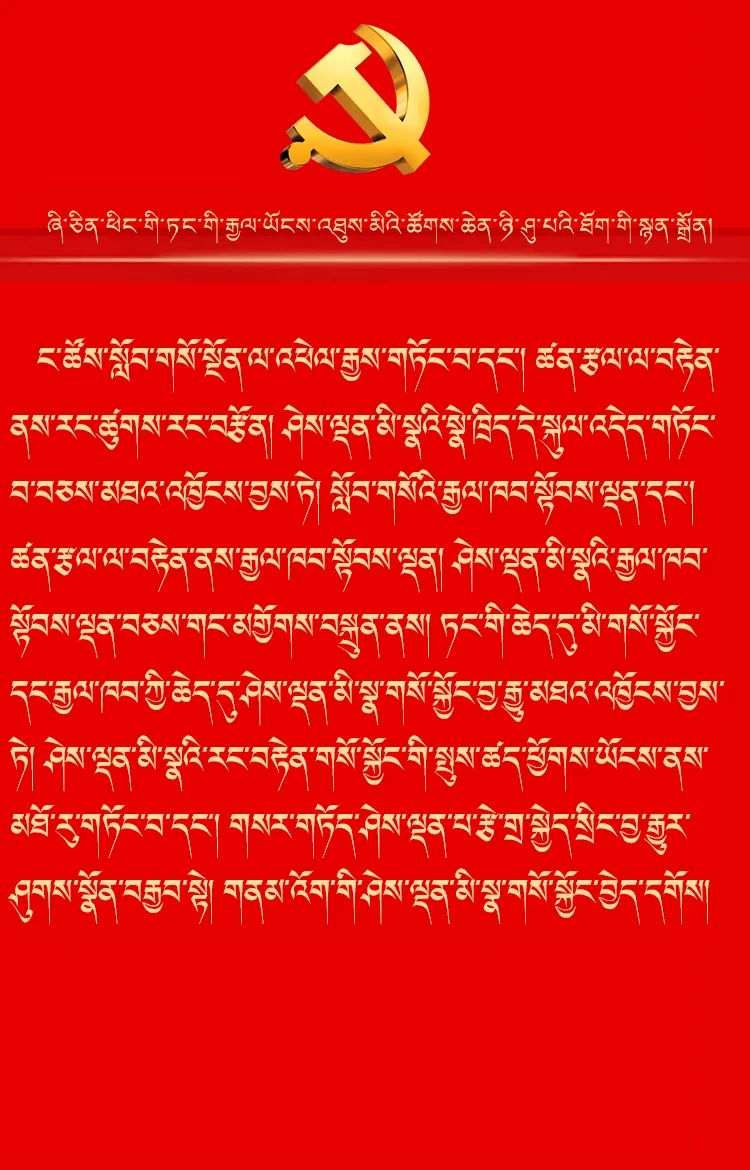 ཞི་ཅིན་ཕིང་གི་ཏང་གི་རྒྱལ་ཡོངས་འཐུས་མིའི་ཚོགས་ཆེན་ཉི་ཤུ་པའི་ཐོག་གི་སྙན་སྒྲོན།
ང་ཚོས་སློབ་གསོ་སྔོན་ལ་འཕེལ་རྒྱས་གཏོང་བ་དང་། ཚན་རྩལ་ལ་བརྟེན་
ནས་རང་ཚུགས་རང་བརྩོན། ཤེས་ལྡན་མི་སྣའི་སྣེ་ཁྲིད་དེ་སྐུལ་འདེད་གཏོང་
བ་བཅས་མཐའ་འཁྱོངས་བྱས་ཏེ། སློབ་གསོའི་རྒྱལ་ཁབ་སྟོབས་ལྡན་དང་།
ཚན་རྩལ་ལ་བརྟེན་ནས་རྒྱལ་ཁབ་སྟོབས་ལྡན། ཤེས་ལྡན་མི་སྣའི་རྒྱལ་ཁབ་
སྟོབས་ལྡན་བཅས་གང་མགྱོགས་བསྐྲུན་ནས། ཏང་གི་ཆེད་དུ་མི་གསོ་སྐྱོང་
དང་རྒྱལ་ཁབ་ཀྱི་ཆེད་དུ་ཤེས་ལྡན་མི་སྣ་གསོ་སྐྱོང་བྱ་རྒྱུ་མཐའ་འཁྱོངས་བྱས་
ཏེ། ཤེས་ལྡན་མི་སྣའི་རང་བརྟེན་གསོ་སྐྱོང་གི་སྤུས་ཚད་ཕྱོགས་ཡོངས་ནས་
མཐོ་རུ་གཏོང་བ་དང་། གསར་གཏོད་ཤེས་ལྡན་པ་རྩེ་གྲ་སྐྱེད་སྲིང་བྱ་རྒྱུར་
ཤུགས་སྣོན་བརྒྱབ་སྟེ། གནམ་འོག་གི་ཤེས་ལྡན་མི་སྣ་གསོ་སྐྱོང་བྱེད་དགོས།